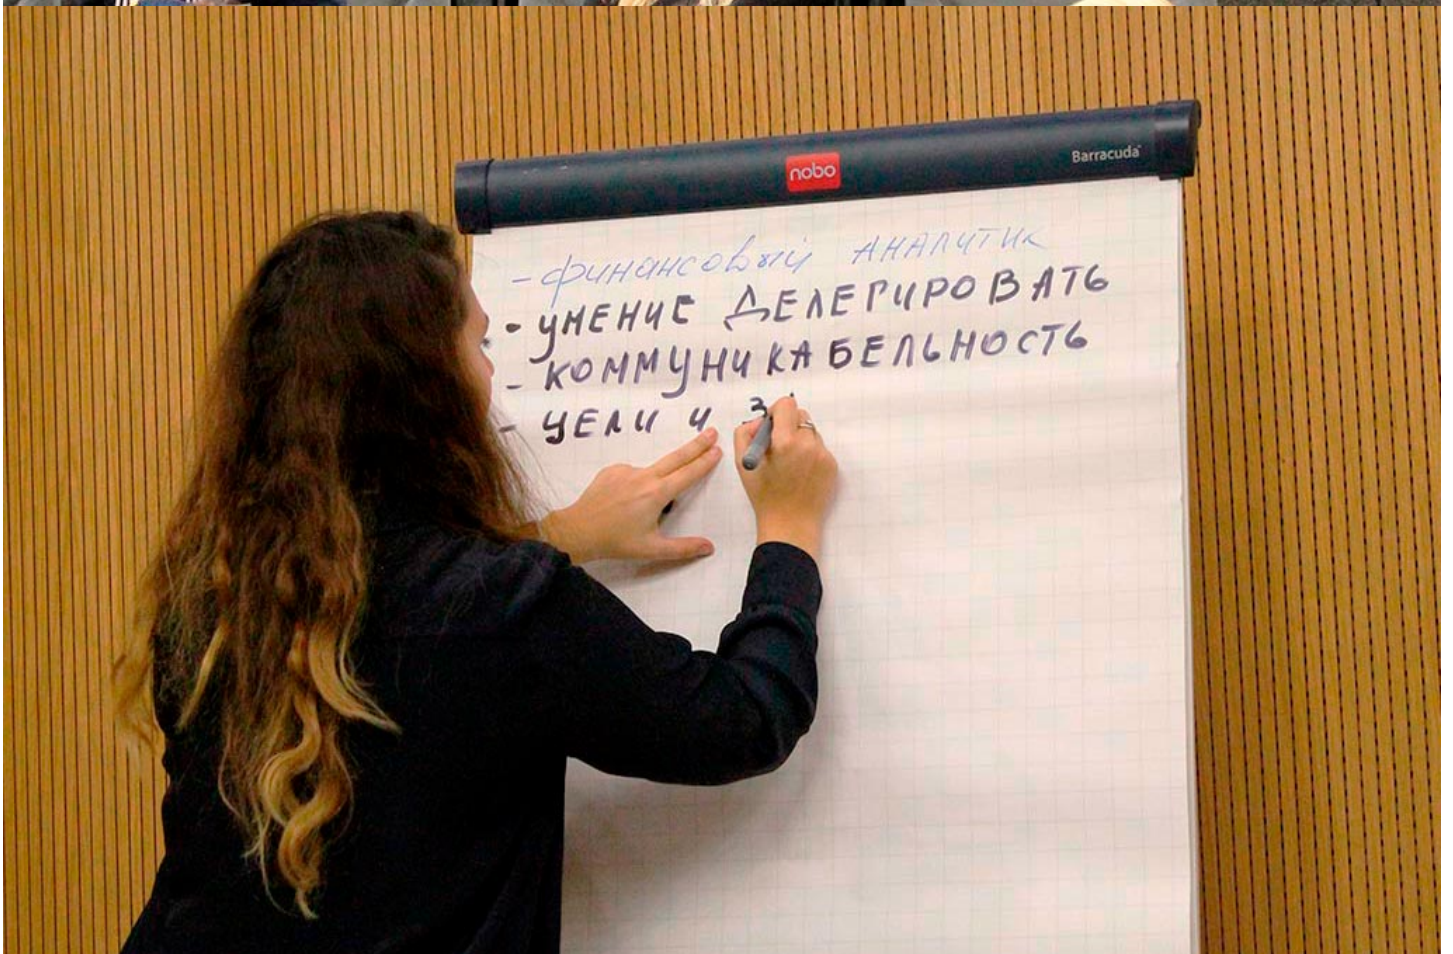 nobo Barracuda
- финансовый АНАЛИТИК
- УМЕНИЕ ДЕЛЕГИРОВАТЬ
- КОММУНИКАБЕЛЬНОСТЬ
- ЦЕЛИ И З